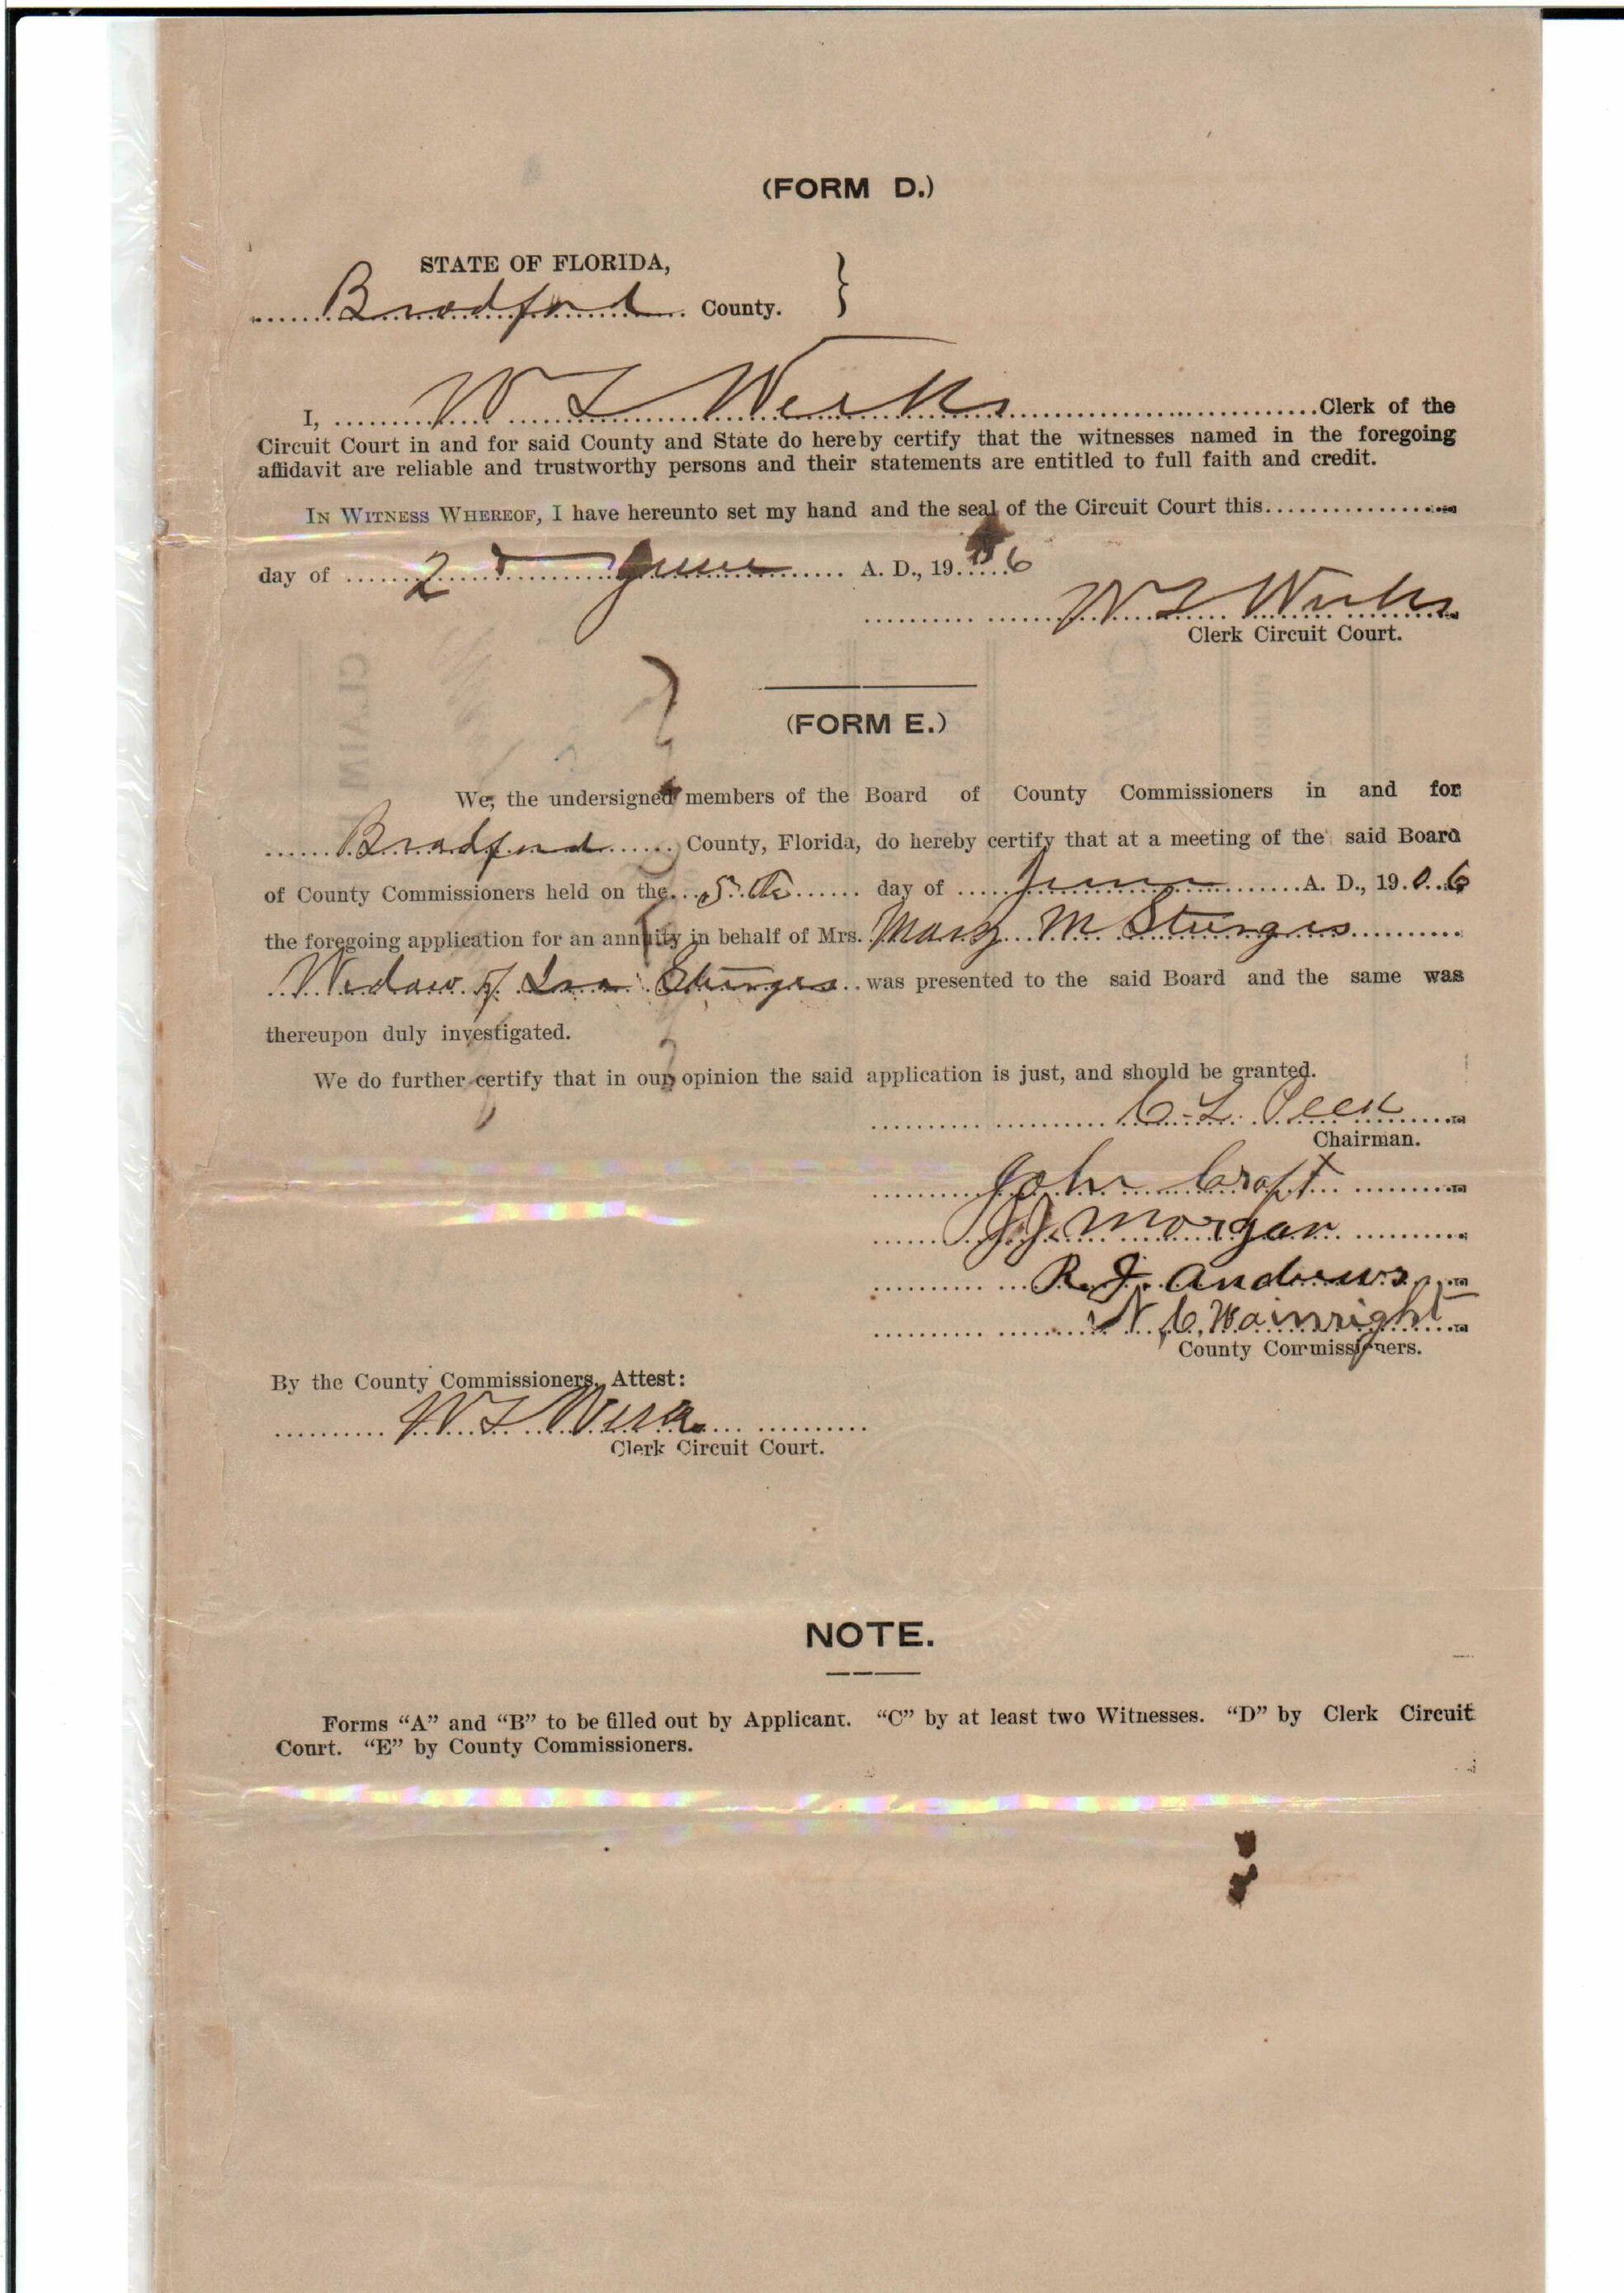 (FORM D.)
STATE OF FLORIDA,
Bradford County. }
I, W L Weeks Clerk of the
Circuit Court in and for said County and State do hereby certify that the witnesses named in the foregoing
affidavit are reliable and trustworthy persons and their statements are entitled to full faith and credit.
IN WITNESS WHEREOF, I have hereunto set my hand and the seal of the Circuit Court this
day of 2d June A. D., 1906
W L Weeks
Clerk Circuit Court.
(FORM E.)
We, the undersigned members of the Board of County Commissioners in and for
Bradford County, Florida, do hereby certify that at a meeting of the said Board
of County Commissioners held on the 5th day of June A. D., 1906
the foregoing application for an annuity in behalf of Mrs. Mary M Sturges
Widow of Ira Sturges was presented to the said Board and the same was
thereupon duly investigated.
We do further certify that in our opinion the said application is just, and should be granted.
C. L. Peek
Chairman.
John Croft
J J Morgan
R. J. Andrews
N. C. Wainright
County Commissioners.
By the County Commissioners, Attest:
W L Weeks
Clerk Circuit Court.
NOTE.
Forms "A" and "B" to be filled out by Applicant. "C" by at least two Witnesses. "D" by Clerk Circuit
Court. "E" by County Commissioners.